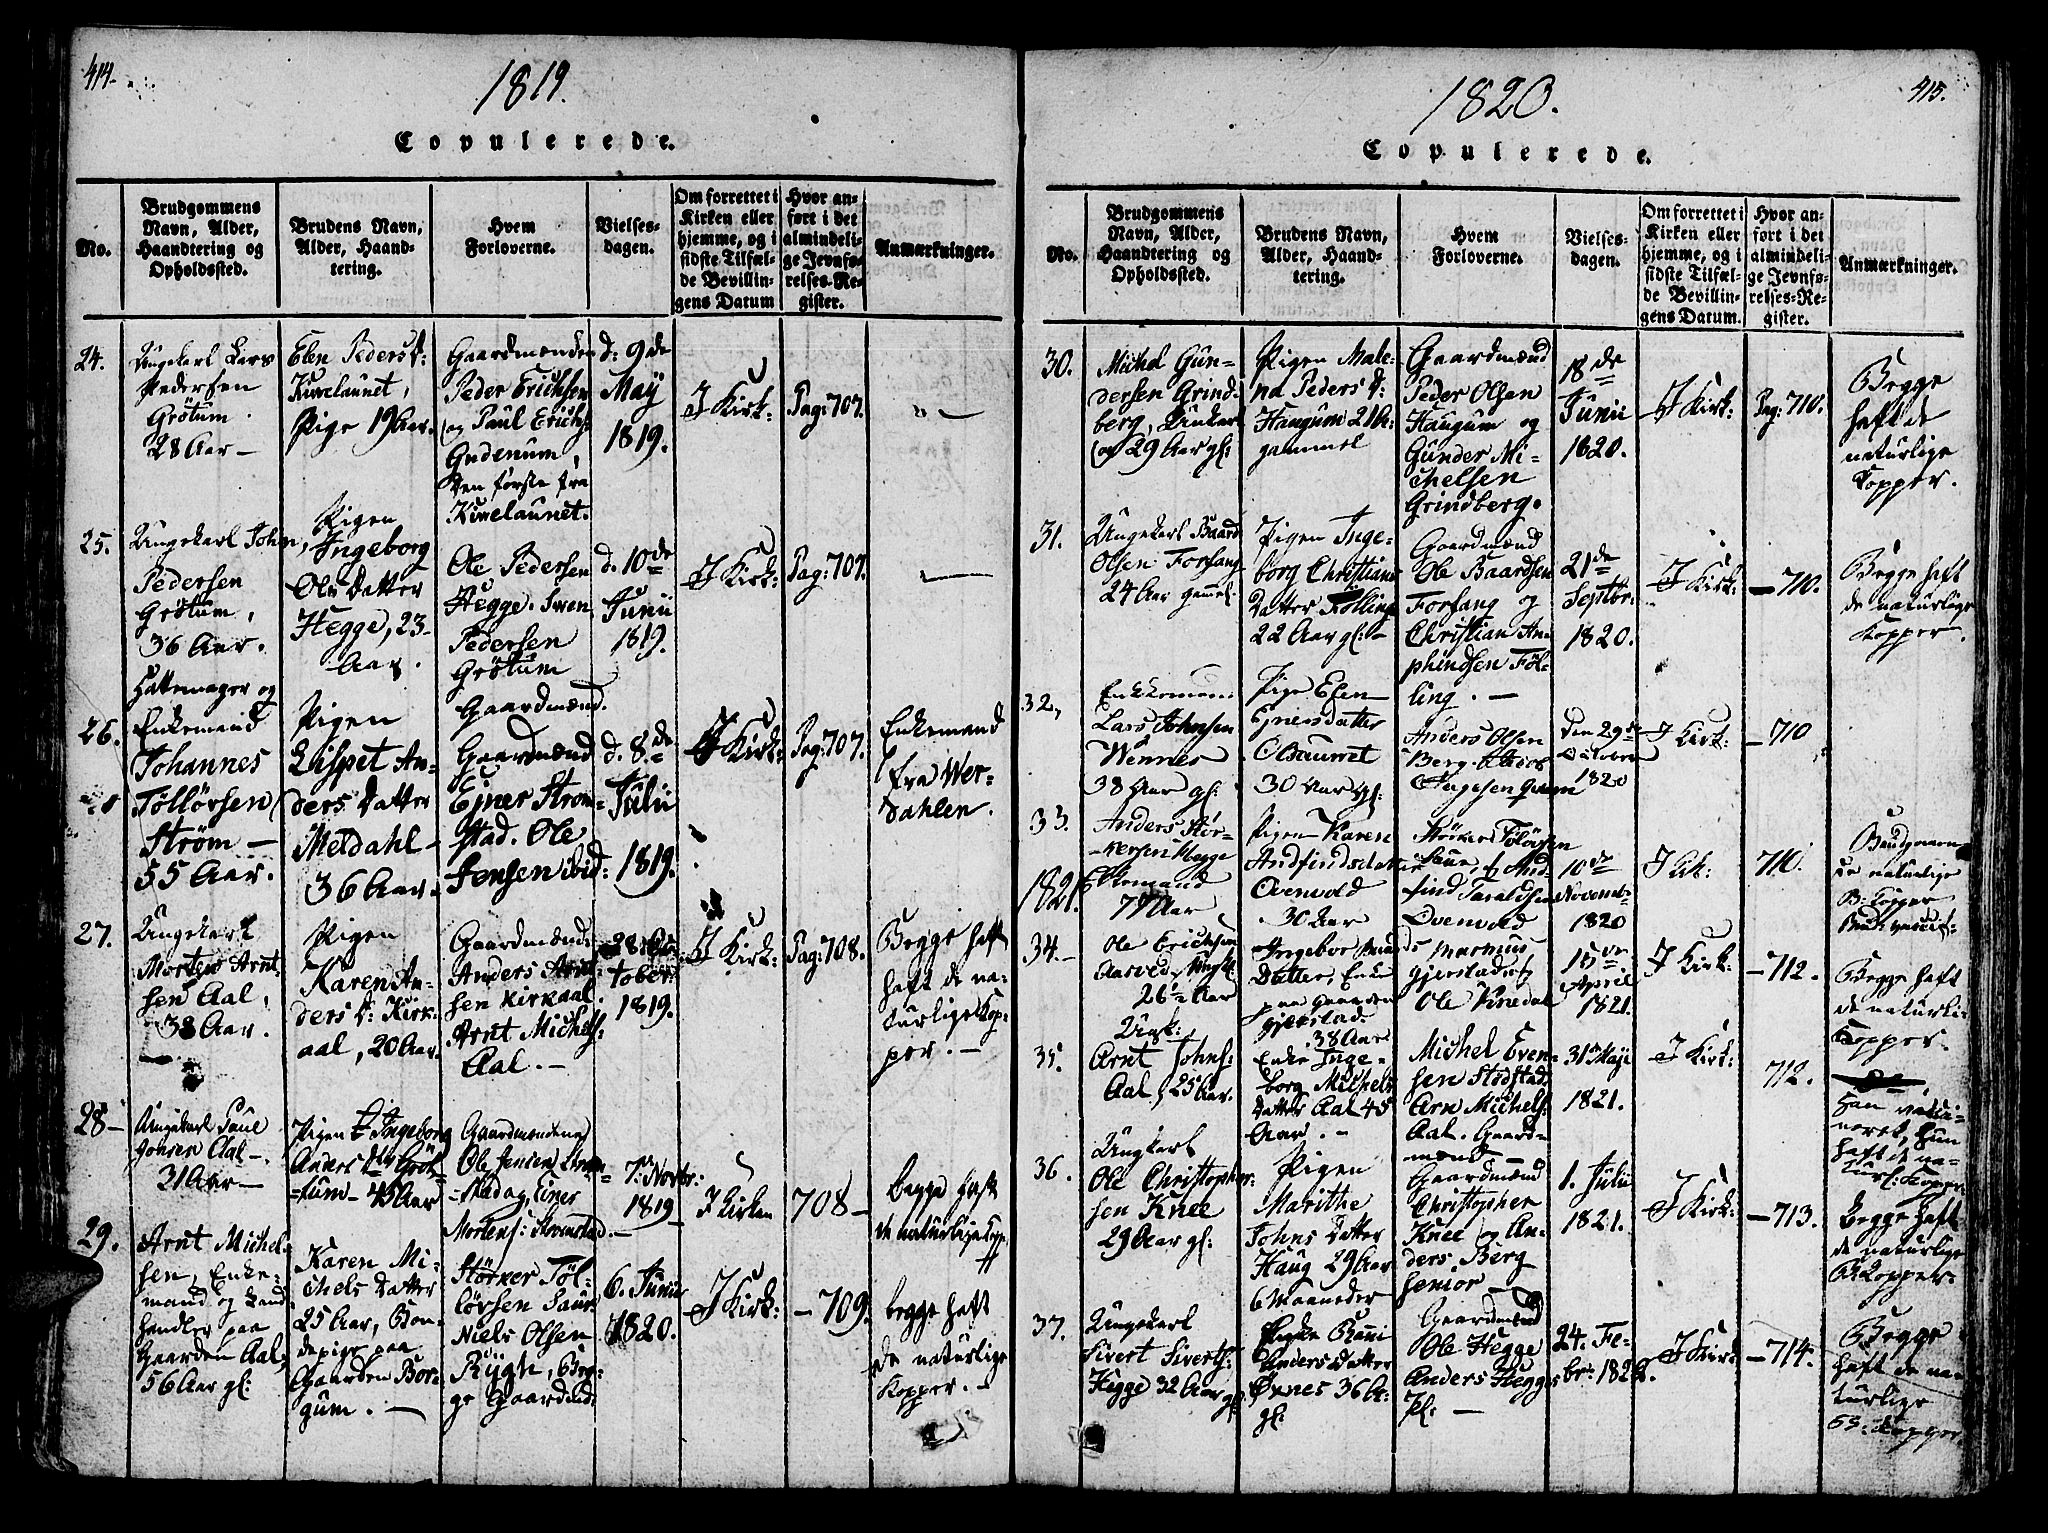 414.
1819.
Copulerede.
No.
Brudgommens
Navn, Alder,
Haandtering og
Opholdssted.
Brudens Navn,
Alder, Haand-
tering.
Hvem
Forloverne.
Vielses-
dagen.
Om forrettet i
Kirken eller
hjemme, og i
sidste Tilfæl-
de Bevillin-
gens Datum
Hvor an-
ført i det
almindeli-
ge Jevnfø-
relses-Re-
gister.
Anmærkninger.
24.
Ungekarl Lars
Pedersen
Grötum.
28 Aar —
Elen Peders D:
Kurelaunet,
Pige 19 Aar.
Gaardmænden
Peder Erichsen
og Paul Erichs:
Gudenum,
den første fra
Kurelaunet.
d: 9de
May
1819.
I Kirk:
Pag: 707.
25.
Ungekarl John
Pedersen
Grötum,
36 Aar.
Pigen
Ingeborg
Ols Datter
Hegge, 23
Aar.
Ole Pedersen
Hegge. Swen
Pedersen
Grötum
Gaardmænd.
d. 10de
Junii
1819.
I Kirk:
Pag: 707.
26.
Hattemager og
Enkemand
Johannes
Töllörsen
Ström —
55 Aar.
Pigen
Lispet An-
ders Datter
Meldahl -
36 Aar.
Gaardmænd
Ejner Strom-
stad. Ole
Jensen ibid:
d. 8.de
Julii
1819.
I Kirk:
Pag: 707.
Enkemand
fra Wer-
dahlen.
27.
Ungekarl
Morten Arnt-
sen Aal,
38 Aar.
Pigen
Karen An-
ders D: Kirk-
aal, 20 Aar.
Gaardmænd:
Anders Arnt-
sen Kirkaal.
Arnt Michels:
Aal. —
28 Oc-
tober
1819.
I Kirk:
Pag: 708.
Begge haft
haft de na-
turlige Kop-
per. —
28 —
Ungekarl Paul
Jonsen Aal —
31 Aar —
Pigen Ingeborg
Anders D: Gröt-
tum — 45 Aar
Gaardmændene
Ole Jensen Strøm-
stad og Einer
Mortens: Strømstad.
7. Novbr:
1819 —
I Kirken
708 —
begge haft
de naturlige Kopp.
29.
Arnt Michel-
sen, Enke-
mand og Land-
handler paa
Gaarden Aal,
56 Aar gl:
Karen Mi-
chels Datter
25 Aar, Bon-
depige paa
Gaarden Bor-
gum. —
Störker Töl-
lörsen Saur.
Niels Olsen
Rygh, Beg-
ge Gaardmd:
6. Junii
1820.
I Kirk:
— 709.
begge haft
de naturlige
Kopper. —
415.
1820.
Copulerede.
No.
Brudgommens
Navn, Alder,
Haandtering og
Opholdssted.
Brudens Navn,
Alder, Haand-
tering.
Hvem
Forloverne.
Vielses-
dagen.
Om forrettet i
Kirken eller
hjemme, og i
sidste Tilfæl-
de Bevillin-
gens Datum.
Hvor an-
ført i det
almindeli-
ge Jevnfø-
relses-Re-
gister.
Anmærkninger.
30.
Michel Gun-
dersen Grind-
berg, Ungkarl
og 29 Aar gl:
Pigen Male-
na Peders D:
Haugum 21 Aar
gammel
Gaardmænd
Peder Olsen
Haugum og
Gunder Mi-
chelsen
Grindberg.
18de
Junii
1820.
I Kirk:
Pag: 710.
Begge
haft de
naturlige
Kopper.
31.
Ungekarl Baard
Olsen Forfang
24 Aar gamel.
Pigen Inge-
borg Christian
Datter Fölling
22 Aar gl: —
Gaardmænd
Ole Baardsen
Forfang og
Christian An-
phindsen Föl-
ling. —
21de
Septbr:
1820.
I Kirk:
— 710.
Begge haft
de naturlige
Kopper.
32,
Enkemann
Lars Johnsen
Wennes
38 Aar gl:
Pige Elen
Ejnersdatter
Olsaunet
30 Aar gl:
Anders Olsen
Berg.
Ingesen
Den 29de
October
1820
I Kirk:
— 710
33.
Anders Stör-
kersen Hegge
Enkemand
77 Aar
Pigen Karen
Andfindsdatter
Overvold
30 Aar
Störker Tölörsen
Saur, og And-
find Taraldsen
Overvold
10de
Novemb:
1820
I Kirk:
710.
Brudgommen
de naturlige
B: Kopper
1821.
34.
Ole Erichsen
Aarved, Ungk:
26½ Aar
Ingebor
Datter, Enke
paa Gaarden
Gjerstad.
38 Aar
Marnus
Gjerstad og
Ole Knedal
15de
April
1821.
I Kirk:
— 712.
Begge haft
de naturli-
Kopper.
35.
Ungk:
Arnt Johns:
Aal, 25 Aar.
Enke Inge-
borg Michels
Datter Aal 45
Aar. —
Michel Even-
sen Stodstad.
Arn Michels:
Aal. Gaard-
mænd —
31 Maji
1821.
I Kirk:
712.
Han vacci-
neret, Hun
haft de na-
turl: Kopper
36.
Ungkarl
Ole Christopher-
sen Knee
29 Aar gl:
Pigen
Marithe
Johns Datter
Haug 29 Aar
6 Maaneder
Gaardmænd
Christopher
Knee og An-
ders Berg
senior —
1. Julii
1821.
I Kirk:
— 713.
Begge haft
de naturlige
B: Kopper.
37.
Ungekarl
Sivert Siverts:
Hegge 32 Aar
gl:
Enke Ranni
Anders Datter
Öxnes 36 A:
gl:
Gaardmænd
Ole Hegge
Anders Hegge
Pl: —
24. Fe-
br: 1822.
I Kirk:
— 714.
Begge
haft de na-
turlige
B: Kopper.